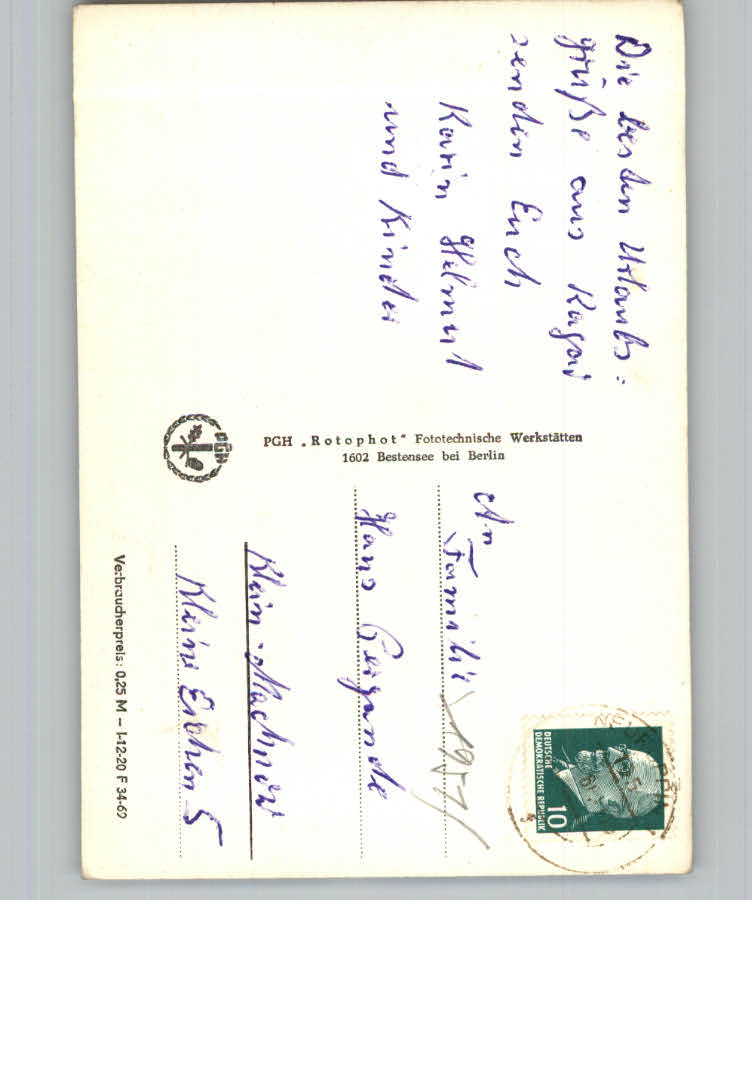 Die besten Urlaubs:
grüße aus Ragow
senden Euch
Karin Helmut
und Kinder
PGH „Rotophot“ Fototechnische Werkstätten
1602 Bestensee bei Berlin
PGH
An
Familie
Hans Geigande
Klein-Machnow
Kleine Eichen 5
Verbraucherpreis: 0,25 M – I-12-20 F 34-69
DEUTSCHE
DEMOKRATISCHE REPUBLIK
10